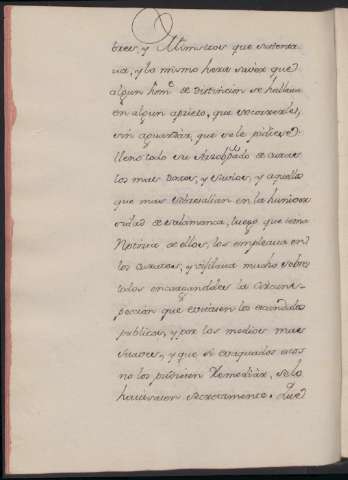 bres, y Ministros que sustenta
ria, y lo mismo hera saver que
algun hom.e de distincion se hallava
en algun aprieto, que socorrerle,
sin aguardar, que se le pidiese.
lleno todo su Arzobpado de curas
los mas Doctos, y y aquellos
que mas sobresalian en la Univer
sidad de Salamanca, luego que tenia
Noticia de ellos, los empleava en
los curatos, y vigilava mucho sobre
todos encargandoles la circuns
peccion que evitasen los escandalos
publicos, y por los medios mas
suaves, y que si evaquados estos
no los pudiesen Remediar, se lo
havisasen secretamente. Que